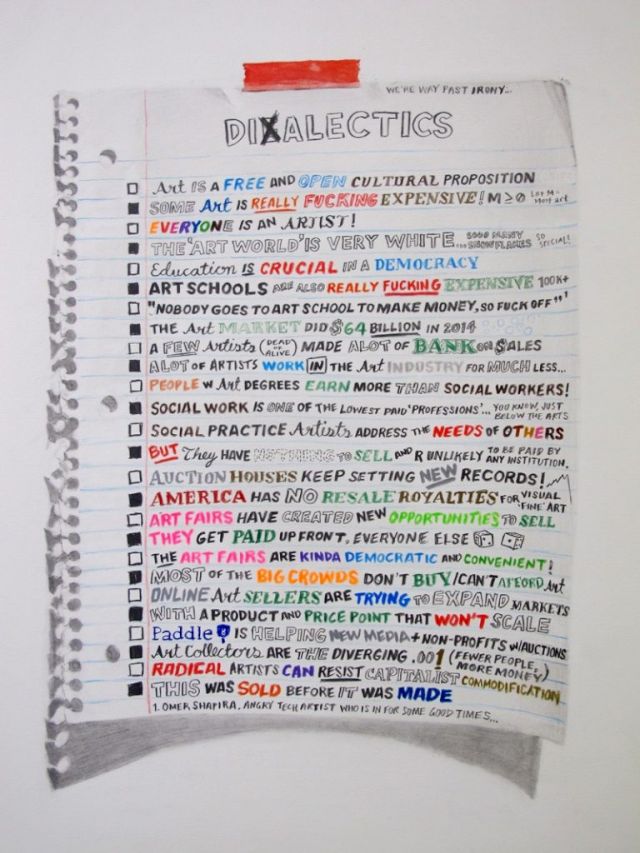 WE'RE WAY PAST IRONY...
DIXALECTICS
Art IS A FREE AND OPEN CULTURAL PROPOSITION
SOME Art IS REALLY FUCKING EXPENSIVE! M≥Ø
EVERYONE IS AN ARTIST!
THE 'ART WORLD' IS VERY WHITE... SOOO MANY SNOWFLAKES SO SPECIAL!
Education IS CRUCIAL IN A DEMOCRACY
ART SCHOOLS ARE ALSO REALLY FUCKING EXPENSIVE 100K+
"NOBODY GOES TO ART SCHOOL TO MAKE MONEY, SO FUCK OFF"¹
THE Art MARKET DID $64 BILLION IN 2014
A FEW Artists (DEAD OR ALIVE) MADE ALOT OF BANK ON $ALES
ALOT OF ARTISTS WORK IN THE Art INDUSTRY FOR MUCH LESS...
PEOPLE W Art DEGREES EARN MORE THAN SOCIAL WORKERS!
SOCIAL WORK IS ONE OF THE LOWEST PAID 'PROFESSIONS'... YOU KNOW, JUST BELOW THE ARTS
SOCIAL PRACTICE Artists ADDRESS THE NEEDS OF OTHERS
BUT They HAVE NOTHING TO SELL AND R UNLIKELY TO BE PAID BY ANY INSTITUTION.
AUCTION HOUSES KEEP SETTING NEW RECORDS!
AMERICA HAS NO RESALE ROYALTIES FOR VISUAL 'FINE' ART
ART FAIRS HAVE CREATED NEW OPPORTUNITIES TO SELL
THEY GET PAID UP FRONT, EVERYONE ELSE
THE ART FAIRS ARE KINDA DEMOCRATIC AND CONVENIENT!
MOST OF THE BIG CROWDS DON'T BUY/CAN'T AFFORD Art
ONLINE Art SELLERS ARE TRYING TO EXPAND MARKETS
WITH A PRODUCT AND PRICE POINT THAT WON'T SCALE
Paddle8 IS HELPING NEW MEDIA + NON-PROFITS W/AUCTIONS
Art Collectors ARE THE DIVERGING .001 (FEWER PEOPLE, MORE MONEY)
RADICAL ARTISTS CAN RESIST CAPITALIST COMMODIFICATION
THIS WAS SOLD BEFORE IT WAS MADE
1. OMER SHAPIRA, ANGRY TECH ARTIST WHO IS IN FOR SOME GOOD TIMES...